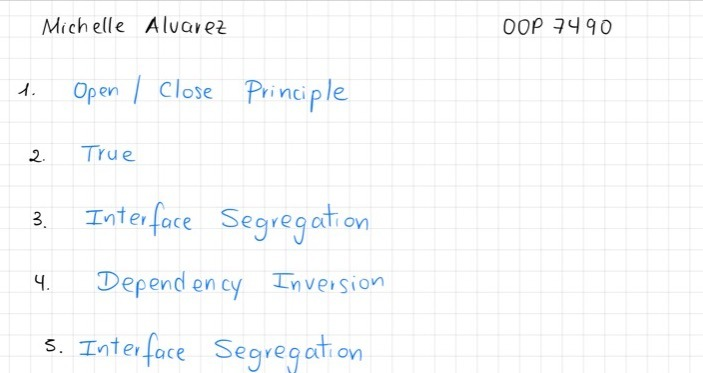 Michelle Alvarez OOP 7490
1. Open / Close Principle
2. True
3. Interface Segregation
4. Dependency Inversion
5. Interface Segregation